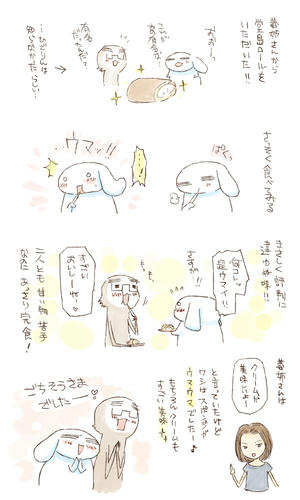 義姉さんから
堂島ロールを
いただいた!!
おおーっ
あの有名な
有名
だったんだ?
…ひどりんは
知らなかったらしい…
さっそく食べてみる
ぱくっ
ウマッ!!
まさしく評判に
違わぬ味!!
何コレ
超ウマイ!!
さすが!!
もぐもぐ
すごい
おいしーせ!
二人とも甘い物苦手
なのにあっさり完食!
義姉さんは
クリームが
美味しいよー
と言っていたけど
ワシはスポンジが
ウマウマでしたー♪
もちろんクリームも
すごい美味!
ごちそうさま
でしたー!